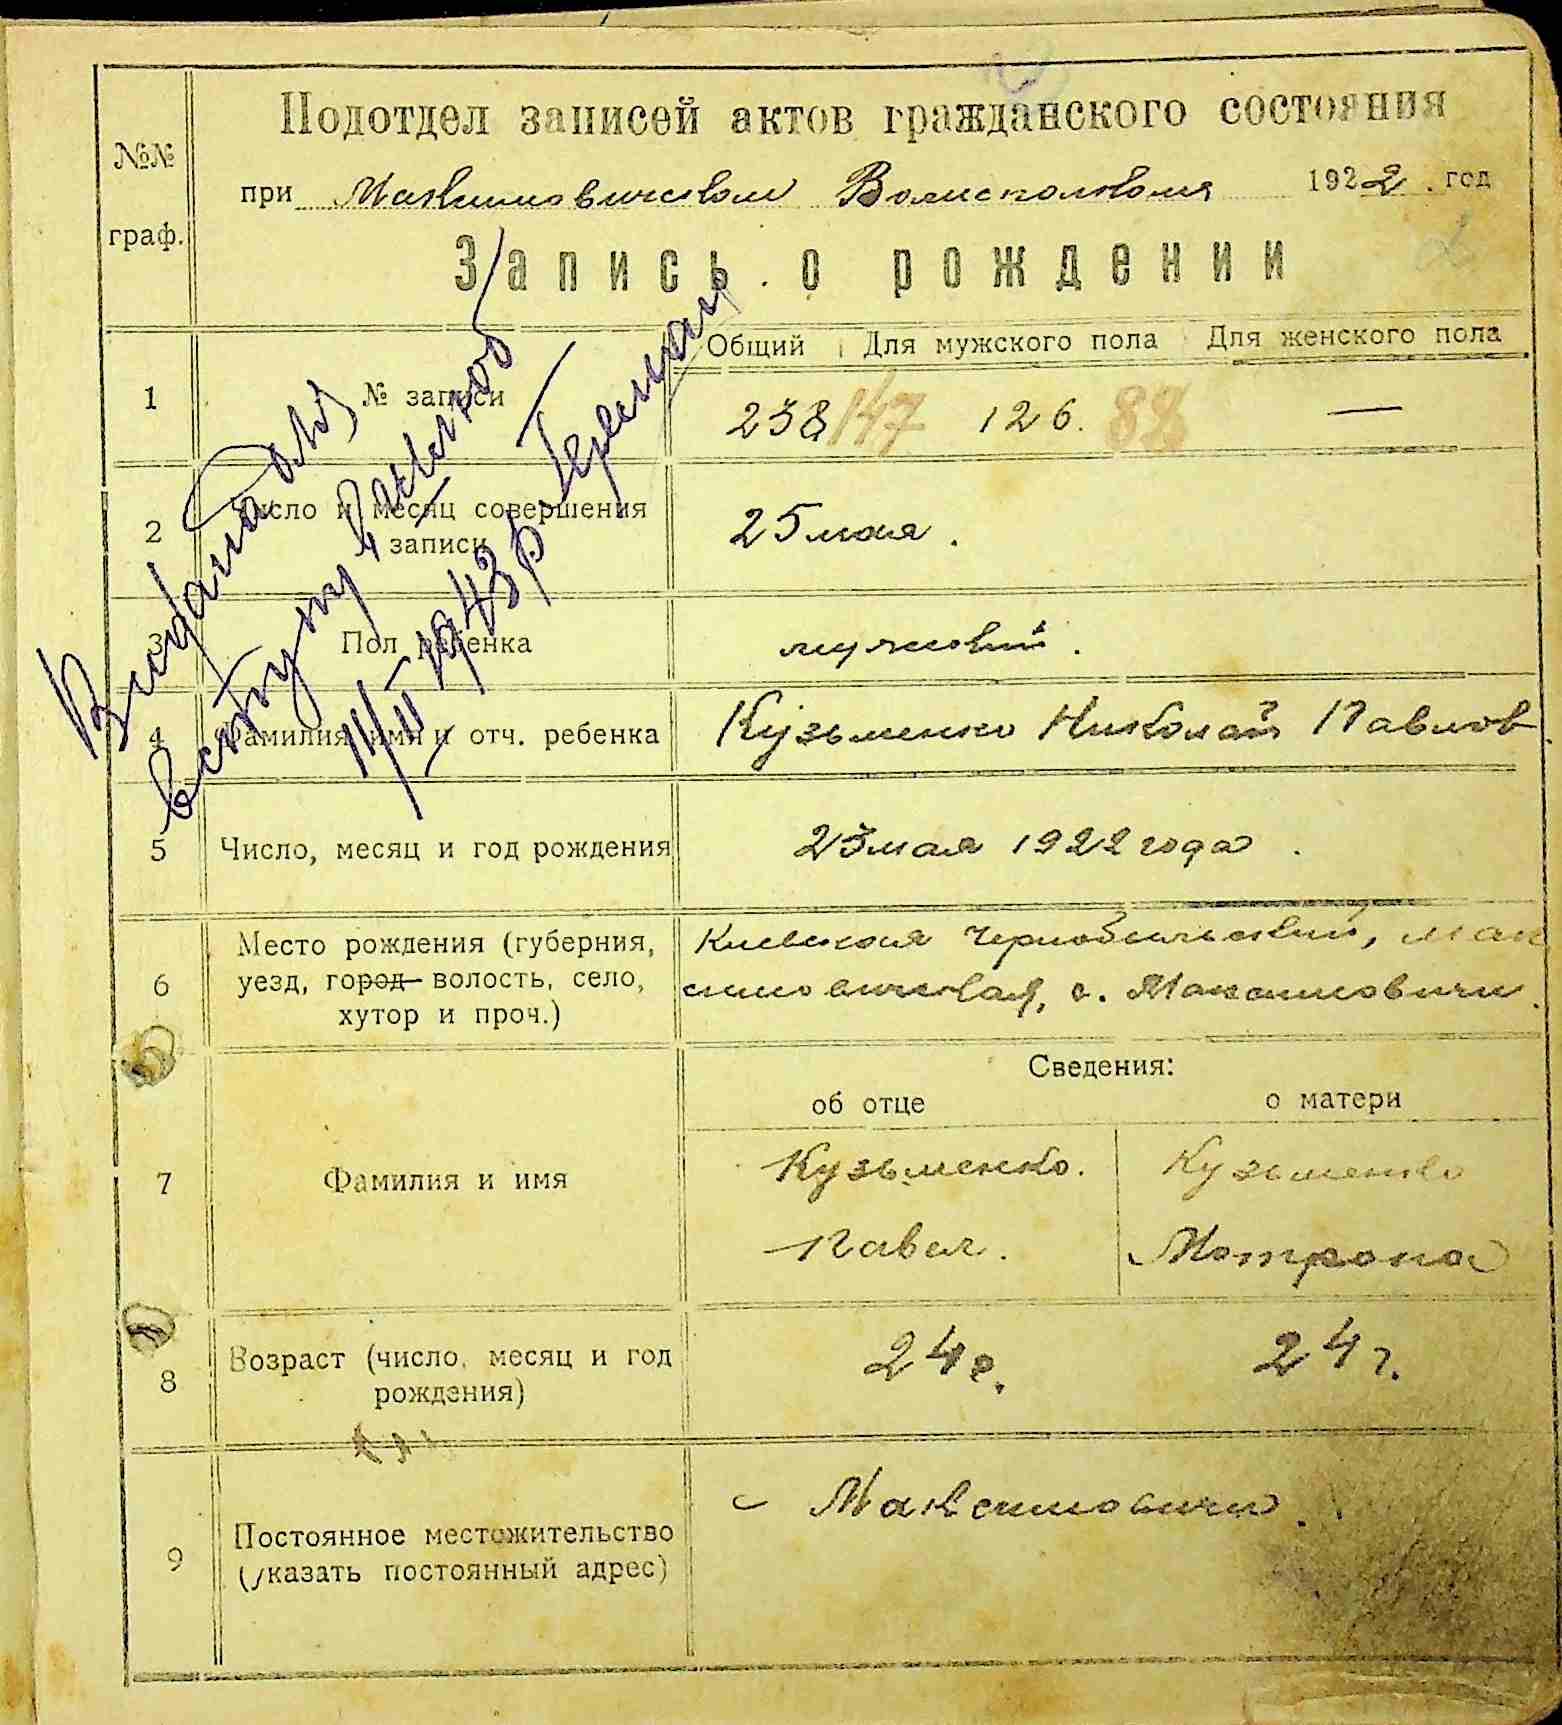 №№ граф.
Подотдел записей актов гражданского состояния
при Максимовичском Волисполкоме 1922 год
Запись о рождении
Общий Для мужского пола Для женского пола
1 № записи 238 147 126. 88 —
2 Число и месяц совершения
записи 25 мая.
3 Пол ребенка мужской.
4 Фамилия, имя и отч. ребенка Кузьменко Николай Павлов
5 Число, месяц и год рождения 23 мая 1922 года.
6 Место рождения (губерния,
уезд, город волость, село,
хутор и проч.)
Киевская Чернобыльский, Мак
симовичская, с. Максимовичи.
Сведения:
об отце о матери
7 Фамилия и имя
Кузьменко. Кузьменко
Павел. Мотрона
8 Возраст (число, месяц и год
рождения)
24 г. 24 г.
9 Постоянное местожительство
(указать постоянный адрес)
с Максимовичи.
Видана
11/III 1943 р.